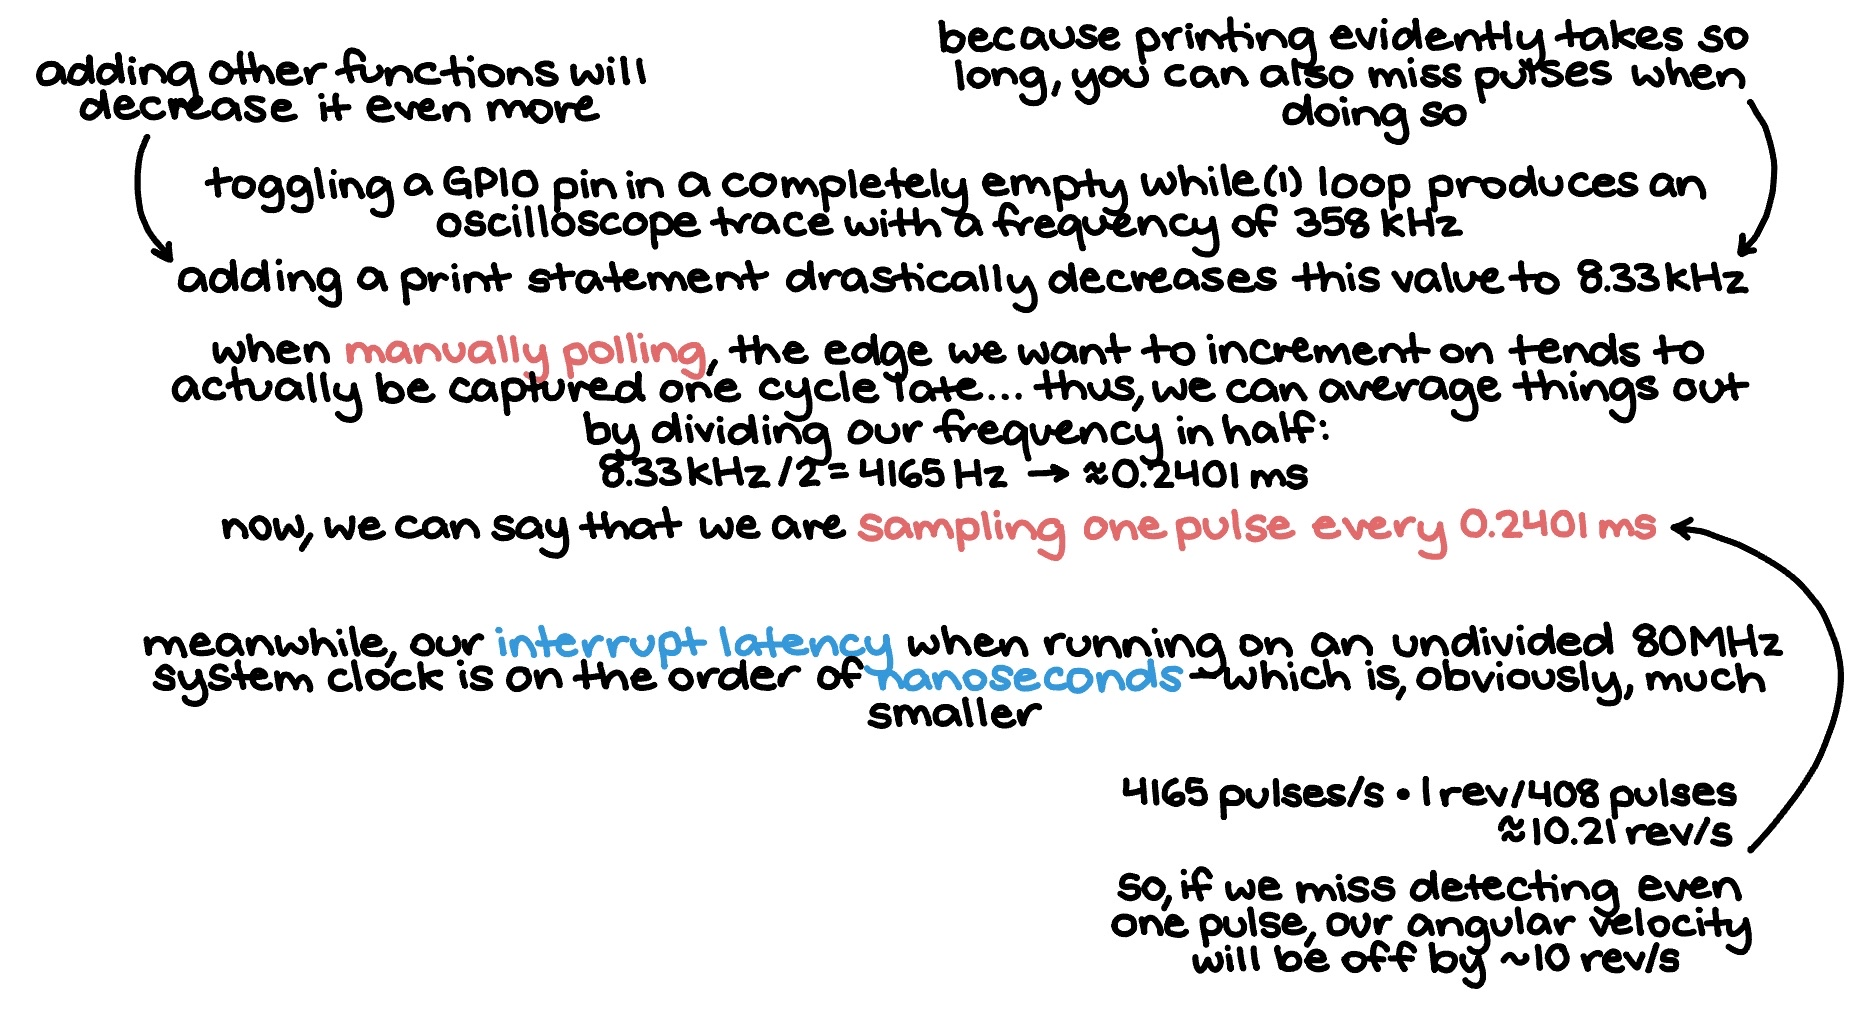 adding other functions will
decrease it even more
because printing evidently takes so
long, you can also miss pulses when
doing so
toggling a GPIO pin in a completely empty while(1) loop produces an
oscilloscope trace with a frequency of 358 kHz
adding a print statement drastically decreases this value to 8.33 kHz
when manually polling, the edge we want to increment on tends to
actually be captured one cycle late... thus, we can average things out
by dividing our frequency in half:
8.33 kHz / 2 = 4165 Hz → ≈0.2401 ms
now, we can say that we are sampling one pulse every 0.2401 ms
meanwhile, our interrupt latency when running on an undivided 80 MHz
system clock is on the order of nanoseconds - which is, obviously, much
smaller
4165 pulses/s • 1 rev/408 pulses
≈10.21 rev/s
so, if we miss detecting even
one pulse, our angular velocity
will be off by ~10 rev/s